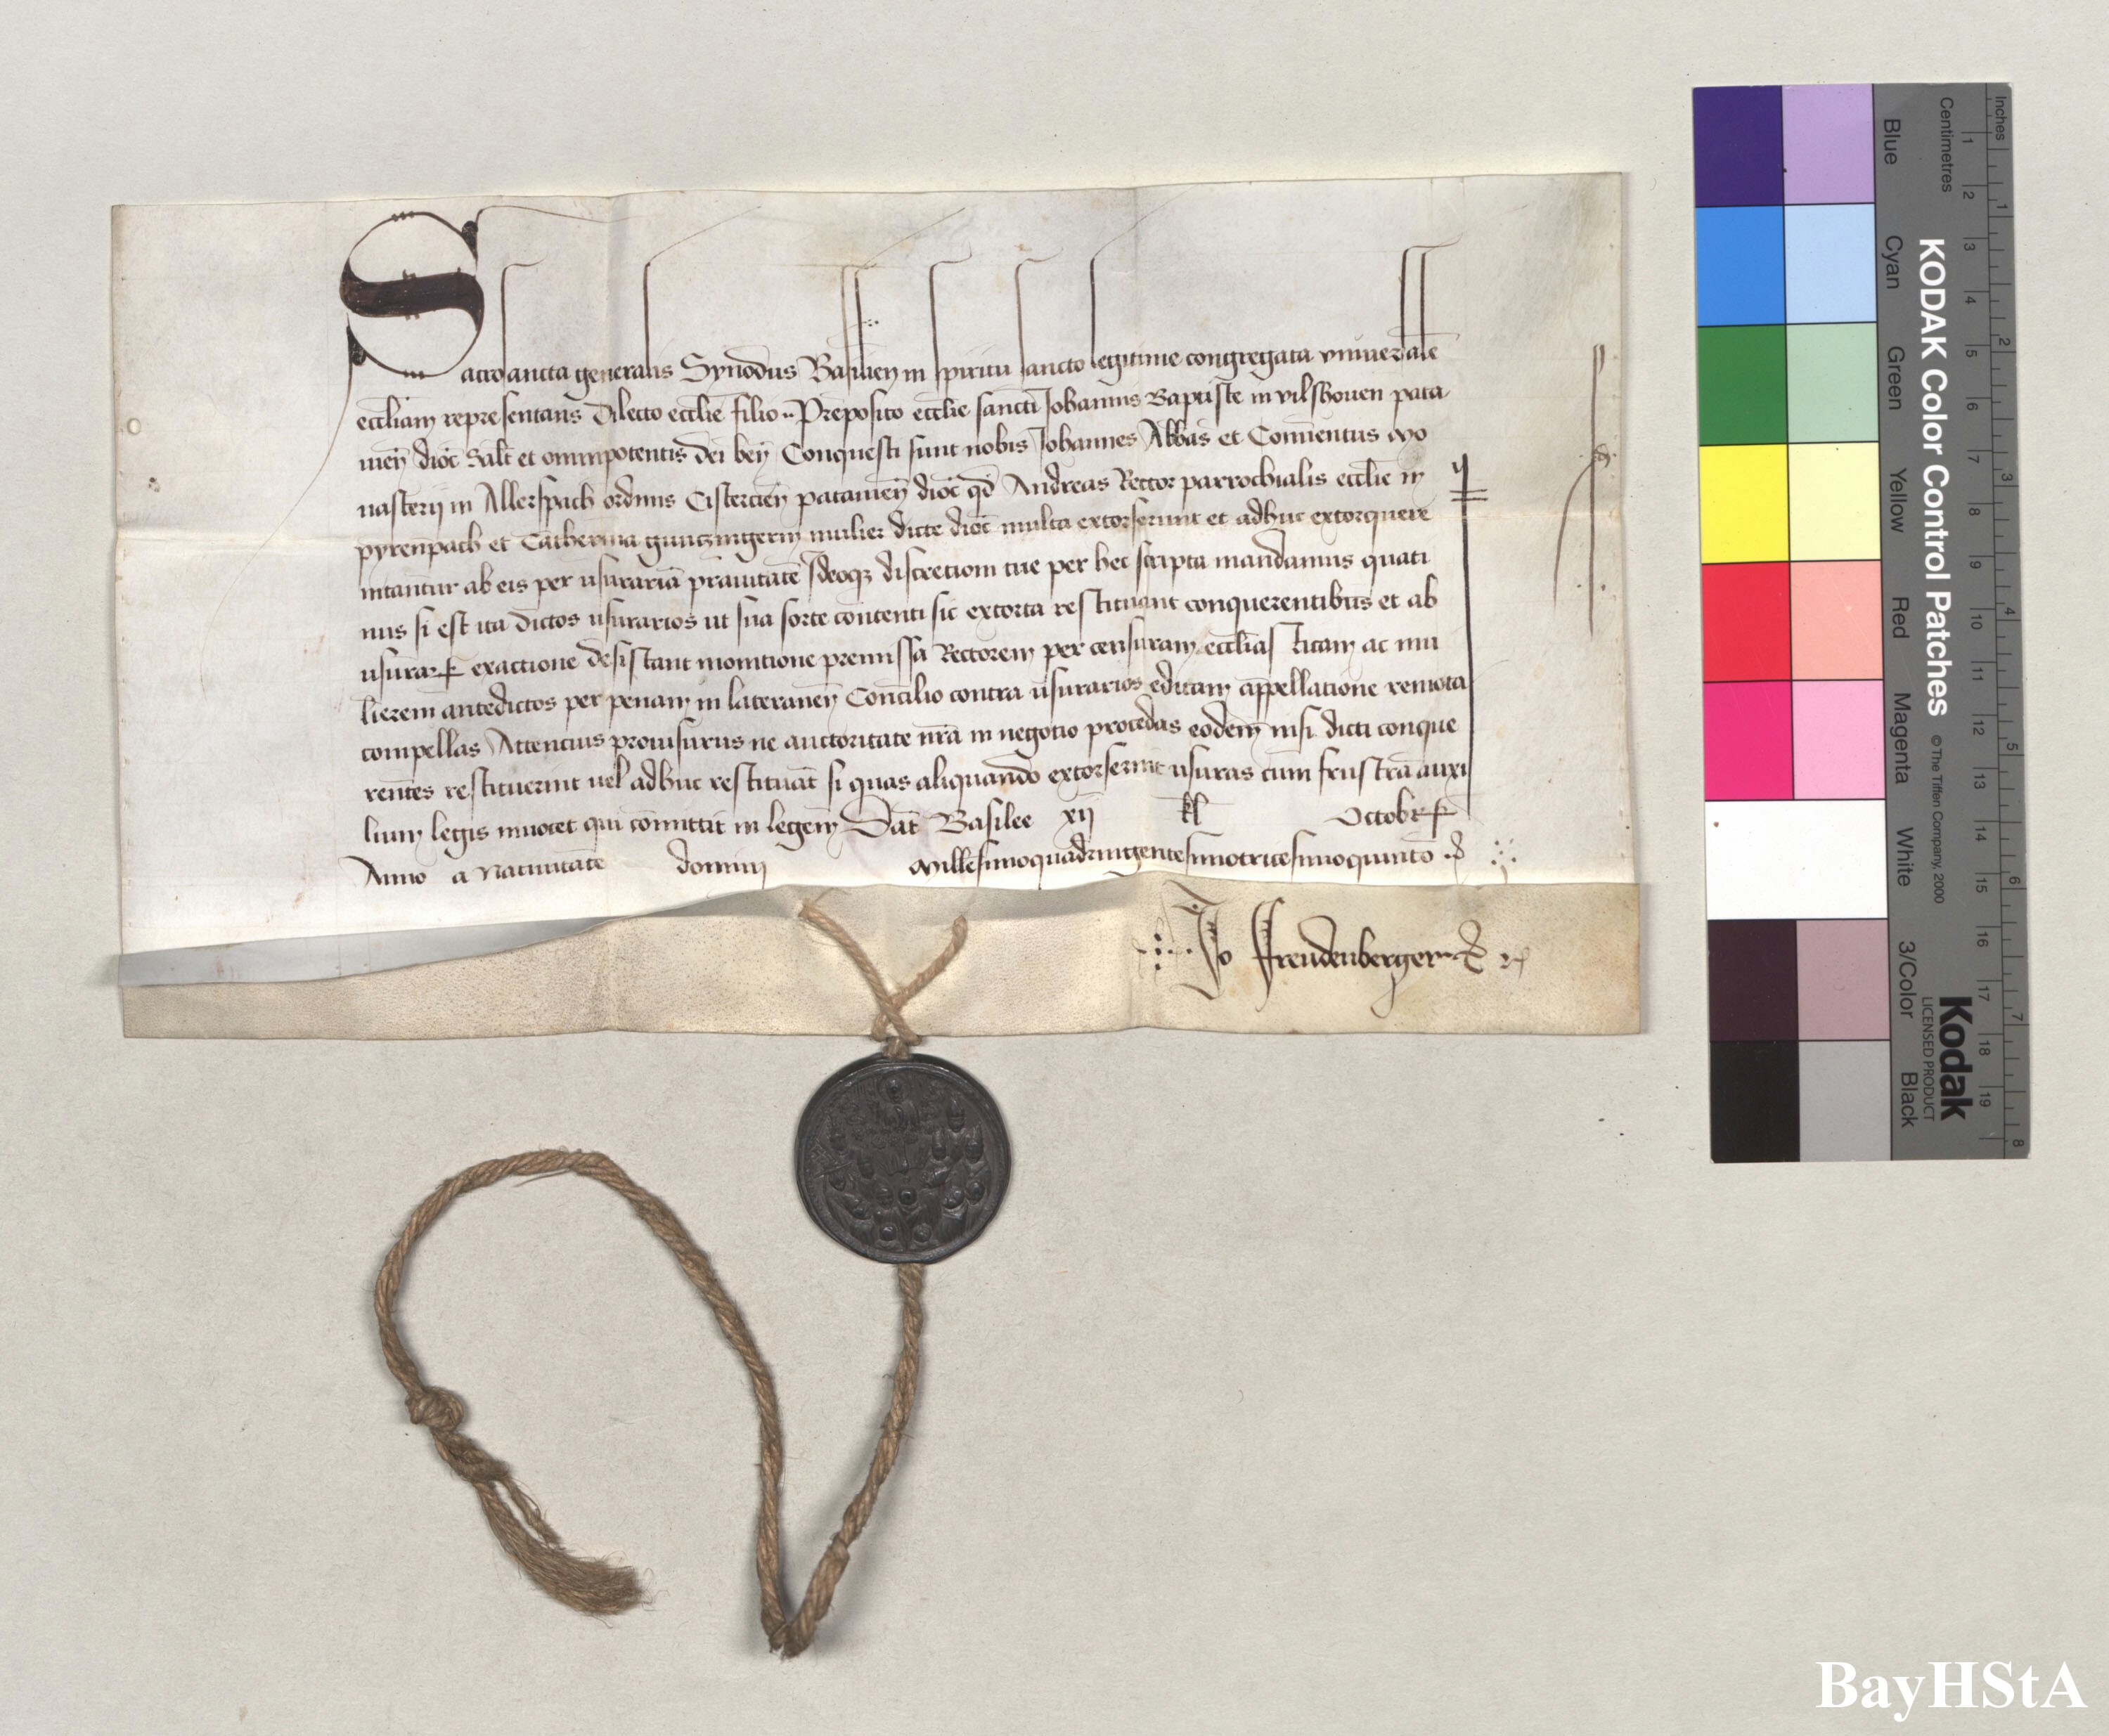 Sacrosancta generalis Synodus Basilien in spiritu sancto legitime congregata vniuersalē
eccliam representans Dilecto ecclie filio .. Preposito ecclie sancti Johannis Baptiste in vilshouen pata
uień dioc̄ Salt̄ et omnipotentis dei beń Conquesti sunt nobis Johannes Abbas et Conuentus Mo
nasterij in Allerspach ordinis Cistercień patauień dioc̄ qd̄ Andreas Rector parrochialis ecclie in
pyrenpach et Catherina gunczingerin mulier dicte dioc̄ multa extorserunt et adhuc extorquere
nitantur ab eis per usurariā prauitatē Ideoqꝫ discretioni tue per hec scripta mandamus quati
nus si est ita dictos usurarios ut sua sorte contenti sic extorta restituant conquerentibus et ab
usurarꝭ exactione desistant monitione premissa Rectorem per censuram eccliasticam ac mu
lierem antedictos per penam in laterañ Concilio contra usurarios editam appellatione remota
compellas Attencius prouisurus ne auctoritate nr̄a in negotio procedas eodem nisi dicti conque
rentes restituerint uel adhuc restituāt si quas aliquando extorserint usuras cum frustra auxi
lium legis inuocet qui cōmittit in legem Dat̄ Basilee xij kl Octobrꝭ
Anno a Natiuitate domini Millesimoquadringentesimotricesimoquinto
Jo Freudenberger
Inches
Centimetres
1 2 3 4 5 6 7 8 9 10 11 12 13 14 15 16 17 18 19
1 2 3 4 5 6 7 8
KODAK Color Control Patches
© The Tiffen Company, 2000
Kodak
LICENSED PRODUCT
Blue
Cyan
Green
Yellow
Red
Magenta
White
3/Color
Black
BayHStA